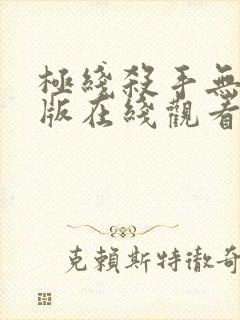 極綫殺手無
版在綫觀看
克賴斯特徹奇